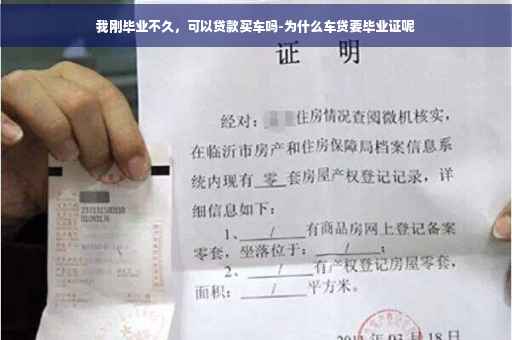 我刚毕业不久，可以贷款买车吗-为什么车贷要毕业证呢
证 明
经对：住房情况查阅微机核实，
在临沂市房产和住房保障局档案信息系
统内现有 零 套房屋产权登记记录，详
细信息如下：
1、 / 有商品房网上登记备案
零套，坐落位于： / ；
2、 / 有产权登记房屋零套，
面积： / 平方米。
03月18日